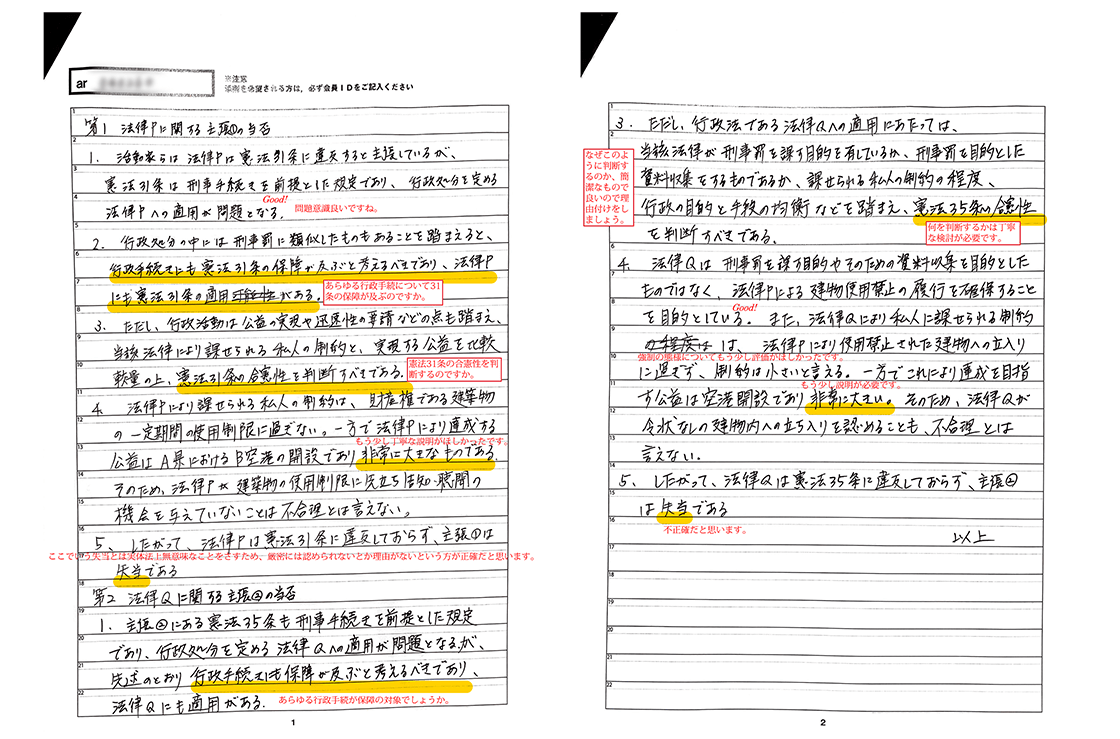 ar
※注意
添削を希望される方は，必ず会員ＩＤをご記入ください
1
第1 法律Pに関する主張①の当否
2
1. 活動家らは法律Pは憲法31条に違反すると主張しているが、
3
憲法31条は刑事手続きを前提とした規定であり、行政処分を定める
4
法律Pへの適用が問題となる。
Good!
問題意識良いですね。
5
2. 行政処分の中には刑事罰に類似したものもあることを踏まえると、
6
行政手続きにも憲法31条の保障が及ぶと考えるべきであり、法律P
7
にも憲法31条の適用がある。
あらゆる行政手続について31
条の保障が及ぶのですか。
8
3. ただし、行政活動は公益の実現や迅速性の要請などの点も踏まえ、
9
当該法律により課せられる私人の制約と、実現する公益を比較
10
較量の上、憲法31条の合憲性を判断すべきである。
憲法31条の合憲性を判
断するのですか。
11
4. 法律Pにより課せられる私人の制約は、財産権である建築物
12
の一定期間の使用制限に過ぎない。一方で法律Pにより達成する
もう少し丁寧な説明がほしかったです。
13
公益はA県におけるB空港の開設であり非常に大きなものである。
14
そのため、法律Pが建築物の使用制限に先立ち告知・聴聞の
15
機会を与えていないことは不合理とは言えない。
16
5. したがって、法律Pは憲法31条に違反しておらず、主張①は
ここでいう失当とは実体法上無意味なことをさすため、厳密には認められないとか理由がないという方が正確だと思います。
17
失当である
18
第2 法律Qに関する主張②の当否
19
1. 主張②にある憲法35条も刑事手続きを前提とした規定
20
であり、行政処分を定める法律Qへの適用が問題となるが、
21
先述のとおり行政手続きにも保障が及ぶと考えるべきであり、
22
法律Qにも適用がある。
あらゆる行政手続が保障の対象でしょうか。
1
1
3. ただし、行政法である法律Qへの適用にあたっては、
2
当該法律が刑事罰を課す目的を有しているか、刑事罰を目的とした
3
資料収集をするものであるか、課せられる私人の制約の程度、
なぜこのよ
うに判断す
るのか、簡
潔なもので
良いので理
由付けをし
ましょう。
4
行政の目的と手段の均衡などを踏まえ、憲法35条の合憲性
5
を判断すべきである。
何を判断するかは丁寧
な検討が必要です。
6
4. 法律Qは刑事罰を課す目的やそのための資料収集を目的とした
7
ものではなく、法律Pによる建物使用禁止の履行を確保すること
8
を目的としている。また、法律Qにより私人に課せられる制約
Good!
9
は、法律Pにより使用禁止された建物への立入り
強制の態様についてもう少し評価がほしかったです。
10
に過ぎず、制約は小さいと言える。一方でこれにより達成を目指
もう少し説明が必要です。
11
す公益は空港開設であり非常に大きい。そのため、法律Qが
12
令状なしの建物内への立ち入りを認めることも、不合理とは
13
言えない。
14
5. したがって、法律Qは憲法35条に違反しておらず、主張②
15
は失当である
不正確だと思います。
16
以上
17
18
19
20
21
22
2